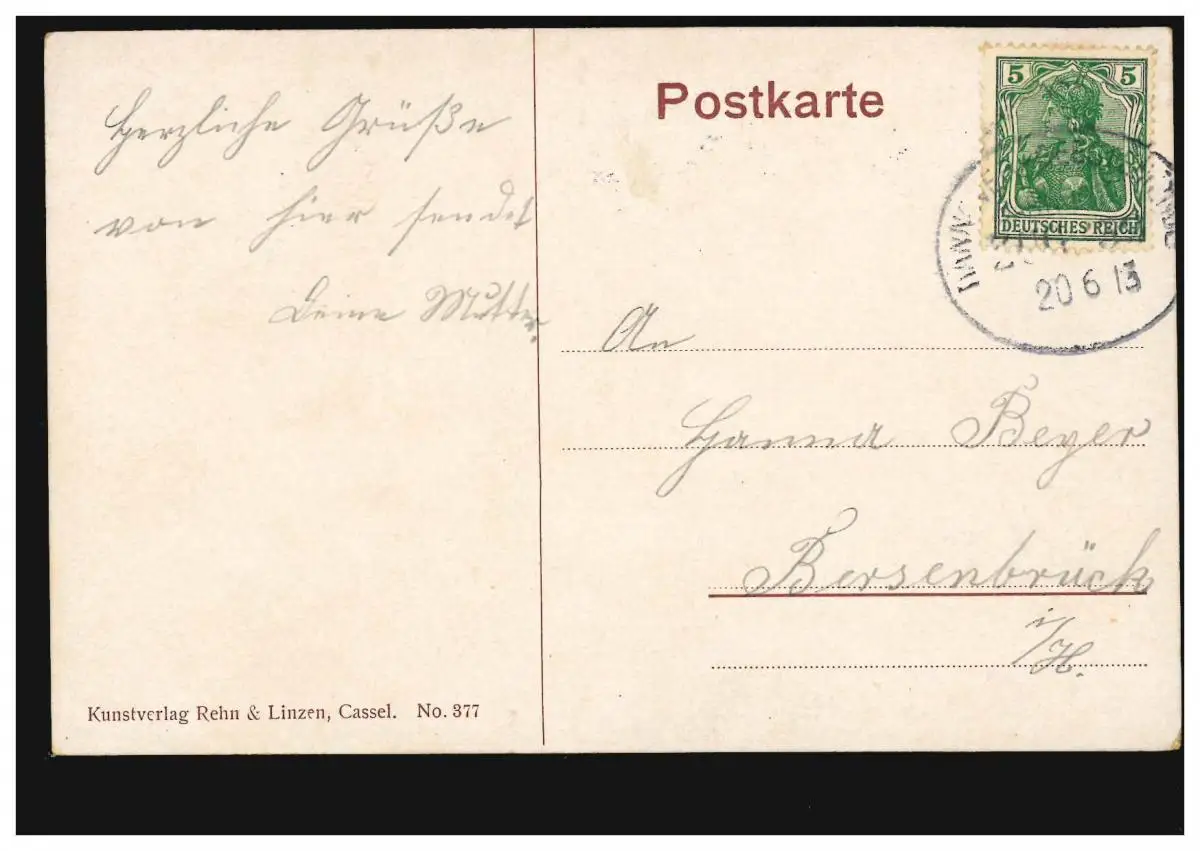 Herzliche Grüße
von hier sendet
Deine Mutter.
Kunstverlag Rehn & Linzen, Cassel. No. 377
Postkarte
5 5
DEUTSCHES REICH
20 6 13
An
Hanna Beyer
Bersenbrück
i/H.